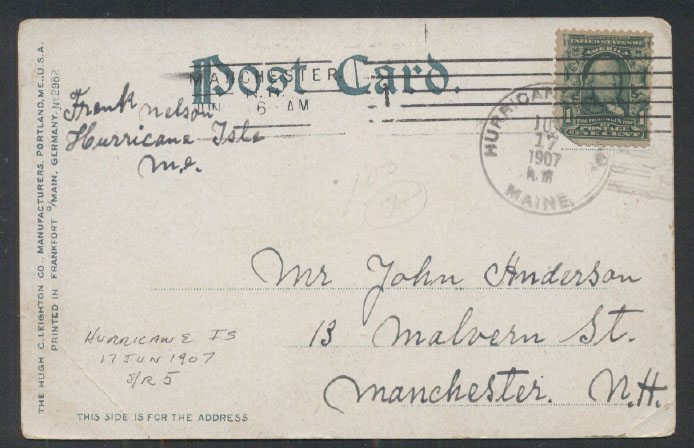 Post Card.
MANCHESTER
N.H.
JUN 6 AM
1
UNITED STATES OF
AMERICA
1 POSTAGE 1
ONE CENT
Frank Nelson
Hurricane Isle
Me.
HURRICANE
JU
17
1907
A.M
MAINE.
Mr John Anderson
13 Malvern St.
Manchester. N.H.
HURRICANE IS
17 JUN 1907
S/R 5
THIS SIDE IS FOR THE ADDRESS
THE HUGH C. LEIGHTON CO., MANUFACTURERS, PORTLAND, ME., U.S.A.
PRINTED IN FRANKFORT o/MAIN, GERMANY. No 2962